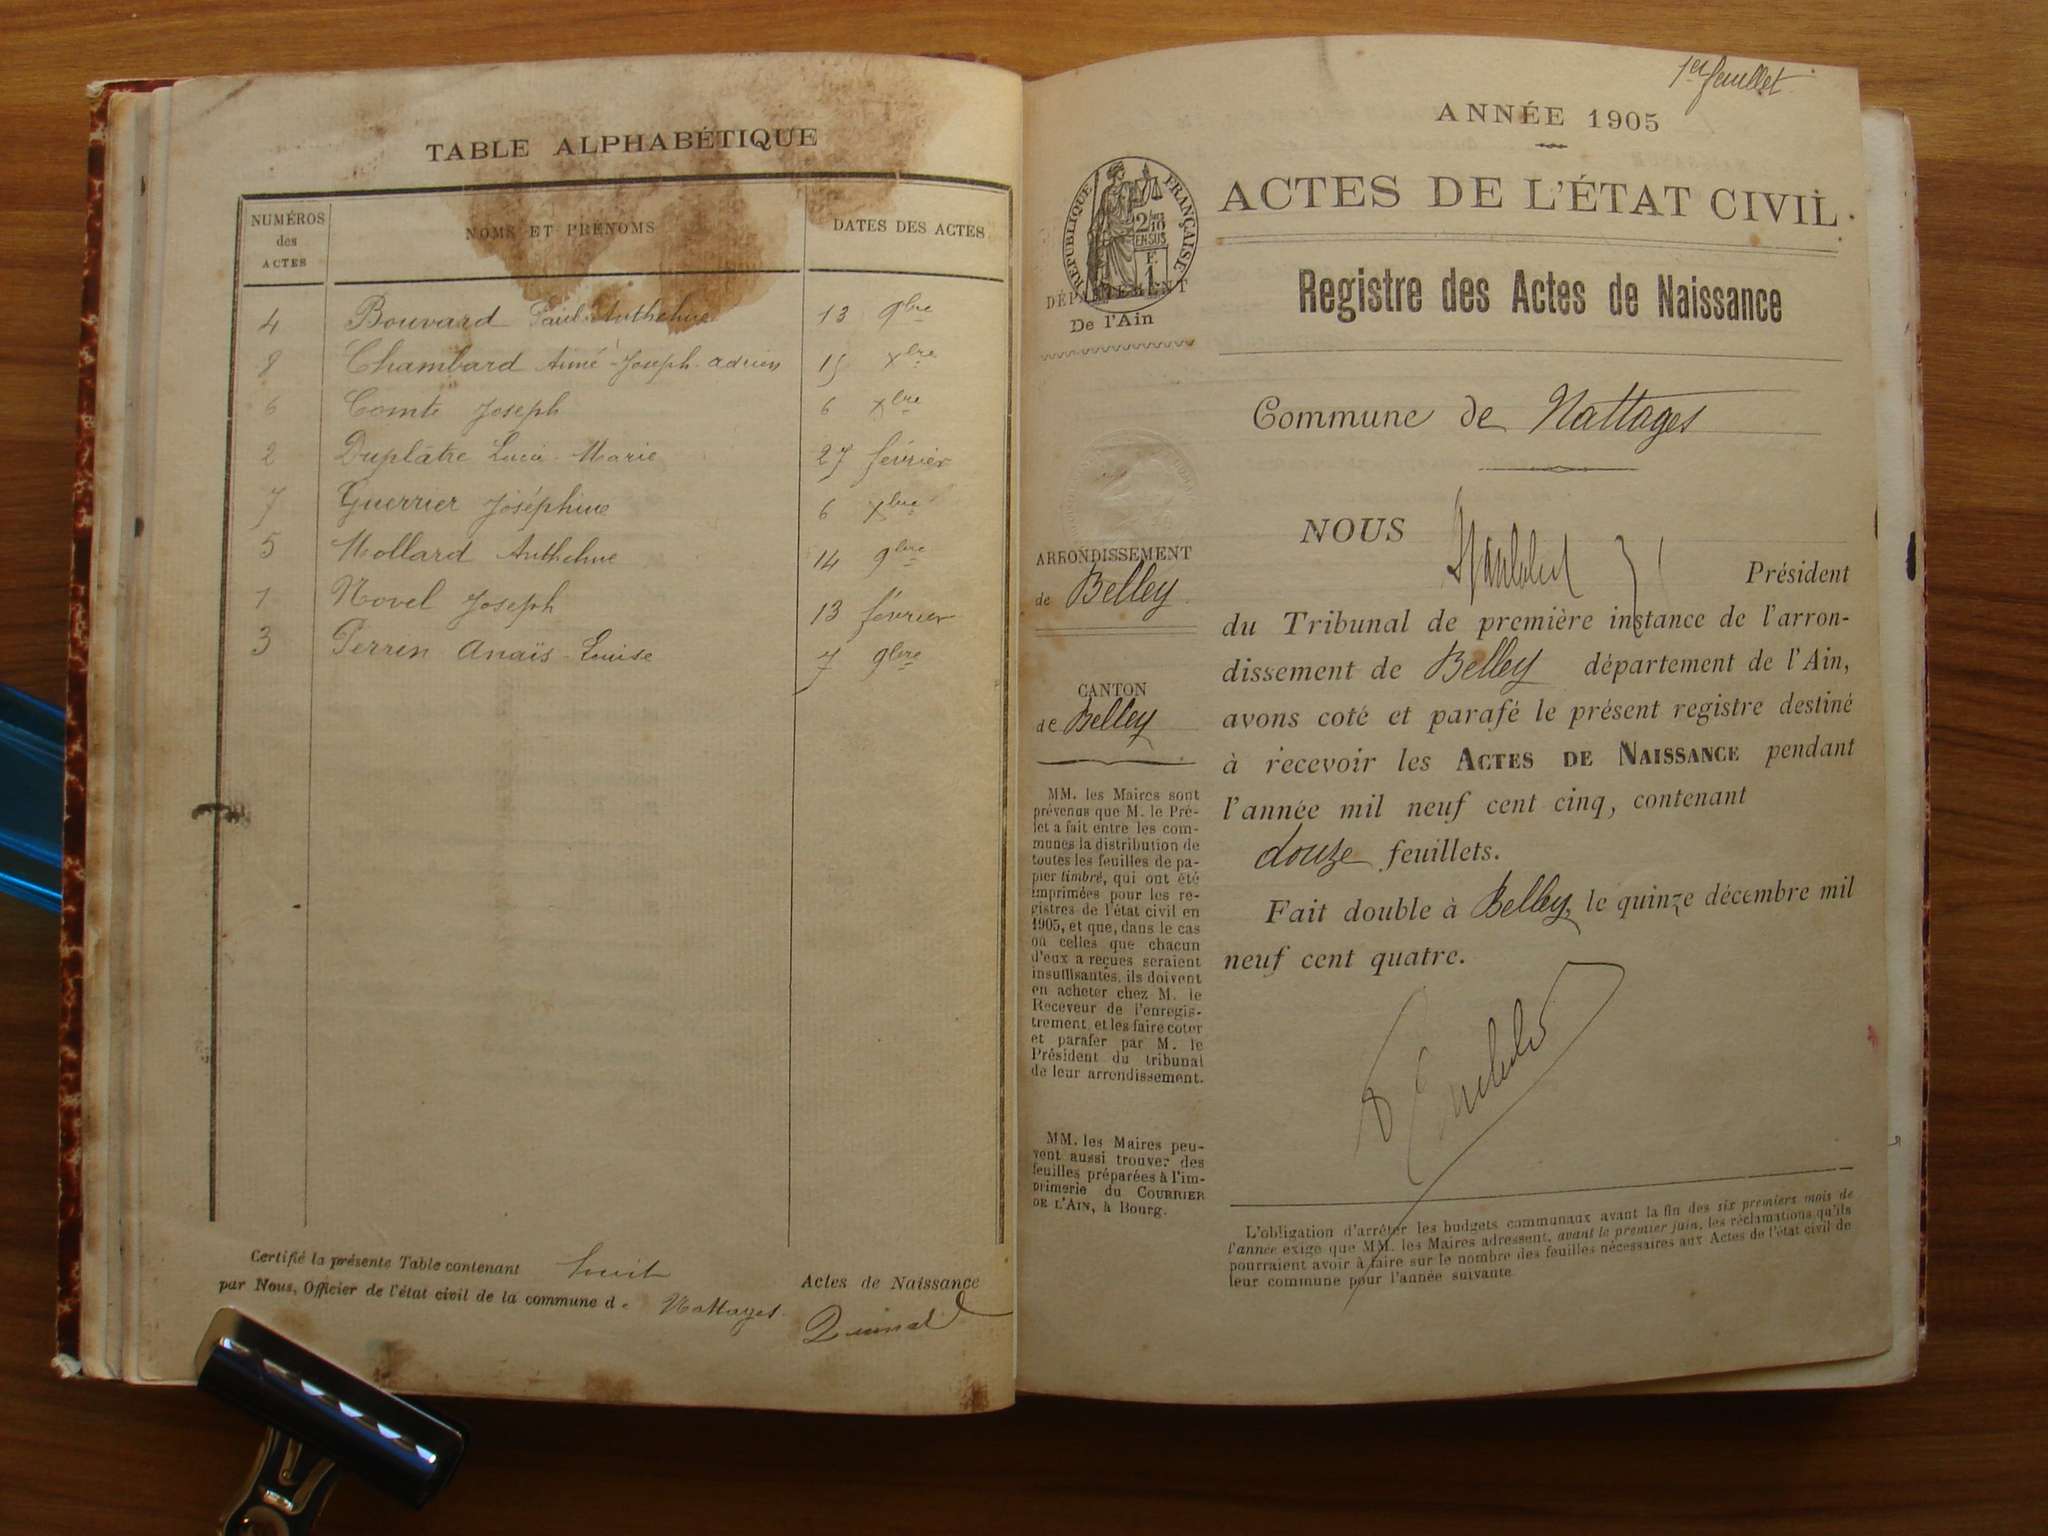 TABLE ALPHABÉTIQUE
NUMÉROS des ACTES NOMS ET PRÉNOMS DATES DES ACTES
4 Bouvard Paul-Anthelme 13 9bre
8 Chambard Aimé-Joseph-adrien 15 xbre
6 Comte Joseph 6 xbre
2 Duplâtre Marie 27 février
7 Guerrier Joséphine 6 xbre
5 Mollard Anthelme 14 9bre
1 Novel Joseph 13 février
3 Perrin Anaïs-Louise 7 9bre
Certifié la présente Table contenant huit Actes de Naissance
par Nous, Officier de l'état civil de la commune de Nattages.
1er feuillet.
ANNÉE 1905
ACTES DE L'ÉTAT CIVIL
RÉPUBLIQUE FRANÇAISE
2/10 EN SUS
F. 1
DÉPARTEMENT
De l'Ain
Registre des Actes de Naissance
Commune de Nattages
ARRONDISSEMENT
de Belley
CANTON
de Belley
MM. les Maires sont
prévenus que M. le Pré-
fet a fait entre les com-
munes la distribution de
toutes les feuilles de pa-
pier timbré, qui ont été
imprimées pour les re-
gistres de l'état civil en
1905, et que, dans le cas
où celles que chacun
d'eux a reçues seraient
insuffisantes, ils doivent
en acheter chez M. le
Receveur de l'enregis-
trement, et les faire coter
et parafer par M. le
Président du tribunal
de leur arrondissement.
MM. les Maires peu-
vent aussi trouver des
feuilles préparées à l'im-
primerie du COURRIER
DE L'AIN, à Bourg.
NOUS
Président
du Tribunal de première instance de l'arron-
dissement de Belley département de l'Ain,
avons coté et parafé le présent registre destiné
à recevoir les ACTES DE NAISSANCE pendant
l'année mil neuf cent cinq, contenant
douze feuillets.
Fait double à Belley, le quinze décembre mil
neuf cent quatre.
L'obligation d'arrêter les budgets communaux avant la fin des six premiers mois de
l'année exige que MM. les Maires adressent, avant le premier juin, les réclamations qu'ils
pourraient avoir à faire sur le nombre des feuilles nécessaires aux Actes de l'état civil de
leur commune pour l'année suivante